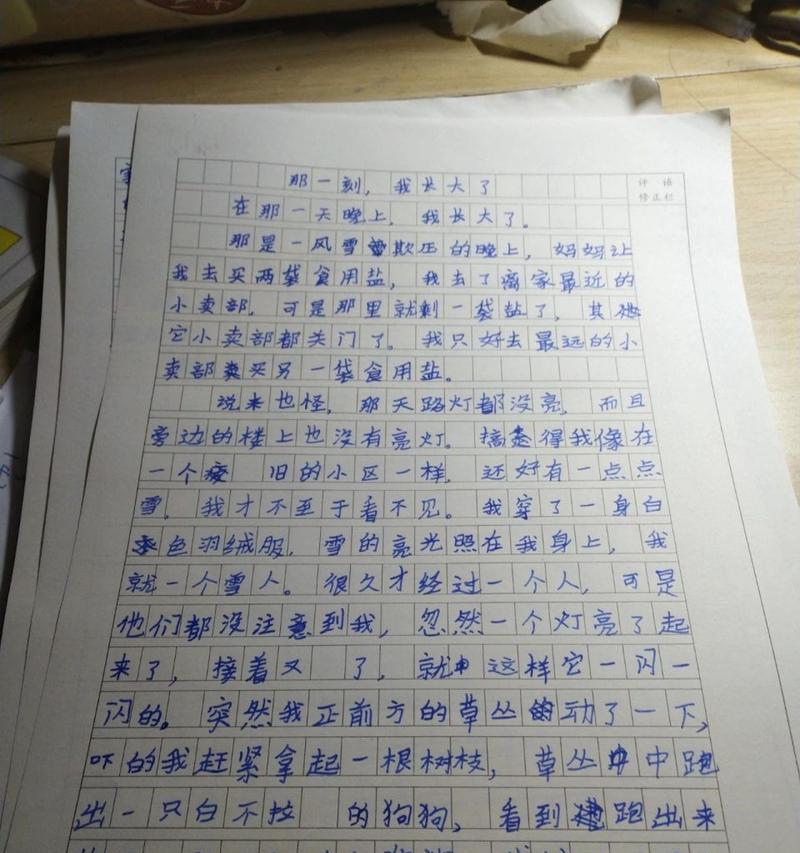 那一刻，我长大了
评 语
修正栏
在那一天晚上，我长大了。
那是一风雪欺压的晚上，妈妈让
我去买两袋食用盐，我去了离家最近的
小卖部，可是那里就剩一袋盐了，其他
它小卖部都关门了。我只好去最远的小
卖部买另一袋食用盐。
说来也怪，那天路灯都没亮，而且
旁边的楼上也没有亮灯。搞得我像在
一个 旧的小区一样，还好有一点点
雪，我才不至于看不见。我穿了一身白
色羽绒服，雪的亮光照在我身上，我
就一个雪人。很久才经过一个人，可是
他们都没注意到我，忽然一个灯亮了起
来了，接着又 了，就 这样它一闪一
闪的。突然我正前方的草丛动了一下，
吓的我赶紧拿起一根树枝，草丛中跑
出一只白不拉 的狗狗，看到跑出来